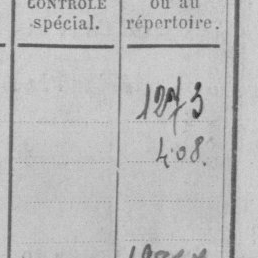 CONTRÔLE
spécial.
ou au
répertoire.
1273
408.